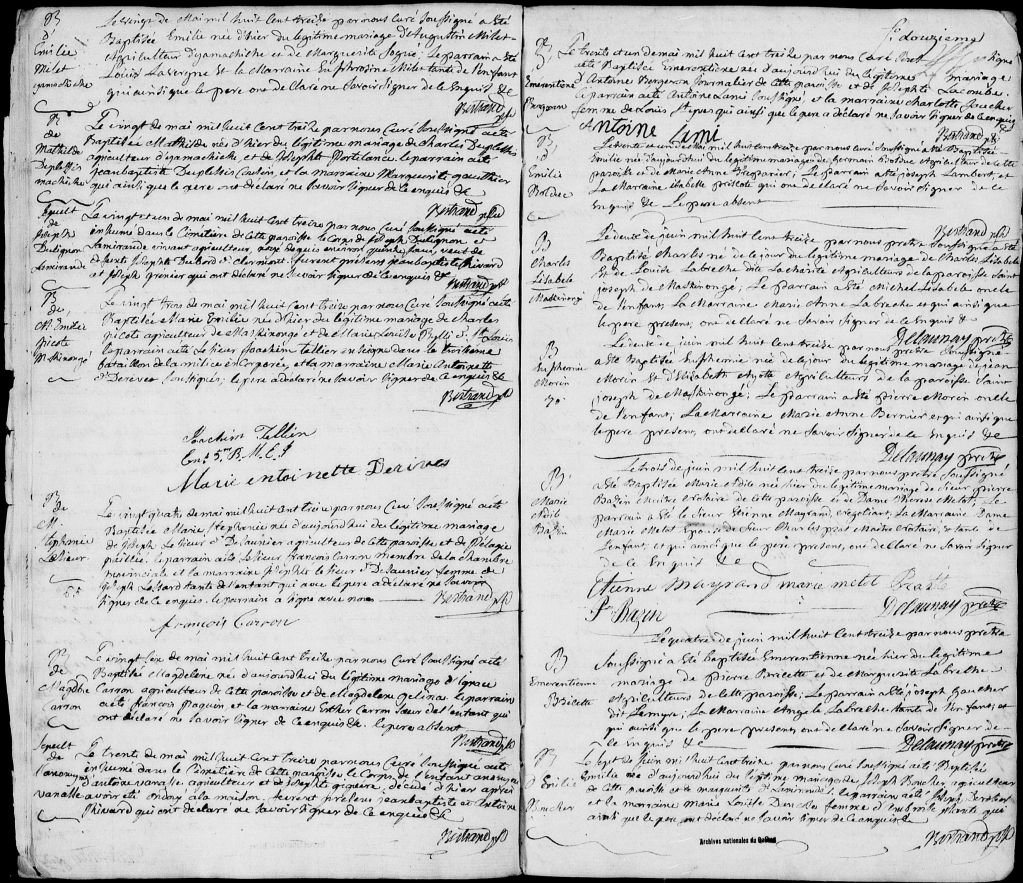 B
d'
Emilie
Milet
yamachiche
Le vingt de Mai mil huit Cent treize par nous Curé Soussigné a Eté
Baptisée Emilie née d'hier du légitime mariage d'Augustin Milet
Agriculteur d'yamachiche et de Marguerite le parrain a Eté
Louis Lavergne et la Marraine Euphrosine Milet tante de l'enfant
qui ainsi que le pere ont declaré ne Savoir Signer de ce Enquis &
Bertrand ptre
B
de
Mathilde
Duplessis
machiche
Le vingt de mai mil huit Cent treize par nous Curé Soussigné a eté
Baptisée Mathilde née d'hier du légitime mariage de Charles Duplessis
agriculteur d'yamachiche et de Josephte Portelance, le parrain a eté
jean baptiste Duplessis Cousin, et la marraine Marguerite gauthier
qui ainsi que le pere ont déclaré ne Savoir Signer de ce enquis &
Bertrand ptre
Sepult
de
Joseph
Dulignon
Lamirande
Le vingt et un de mai mil huit Cent treize par nous Curé Soussigné a eté
inhumé dans le Cimetière de Cette paroisse le Corps de Joseph Dulignon et
Lamirande vivant agriculteur, agé depuis environ quinze jours, veuf de
Dulord et Clermont. furent présens jean baptiste Rivard
et Joseph grenier qui ont déclaré ne Savoir Signer de Ce enquis &
Bertrand ptre
B
de
M. Emilie
picote
Maskinongé
Le vingt trois de mai mil huit Cent treize par nous Curé Soussigné a eté
Baptisée Marie Emilie née d'hier du légitime mariage de Charles
picote agriculteur de Maskinongé et de Marie Louise St. Louis
le parrain a eté le Sieur Joachim Tellier enseigne dans le Cinquieme
bataillon de la milice incorporée, et la marraine Marie Antoinette
Derives Soussignés, le pere a déclaré ne Savoir Signer de Ce enquis &
Bertrand ptre
Joachim Tellier
Ens 5e B. M. C. I
Marie entoinette Derives
B
de
M.
Stephanie
Lesieur
Le vingt quatre de mai mil huit Cent treize par nous Curé Soussigné a eté
Baptisée Marie Stephanie née d'aujourd'hui du légitime mariage
de Joseph Le Sieur et Desaunier agriculteur de Cette paroisse, et de Pélagie
le parrain a eté le Sieur françois Carron membre de la Chambre
provinciale et la marraine Josephte le Sieur et Desaunier femme de
Joseph tante de l'enfant qui avec le pere a declaré ne Savoir
Signer de Ce enquis. le parrain a Signé avec nous
Bertrand ptre
françois Carron
B
de
Magdne
Carron
Le vingt six de mai mil huit Cent treize par nous Curé Soussigné a eté
Baptisée Magdelene née d'aujourd'hui du légitime mariage d'Ignace
Carron agriculteur de Cette paroisse et de Magdelene gelina, le parrain
a eté françois paquin, et la marraine Esther Carron Soeur de l'enfant qui
ont déclaré ne Savoir Signer de Ce enquis &. le pere absent
Bertrand ptre
Sepult
de
l'anonyme
vanasse
Le trente de mai mil huit Cent treize par nous Curé Soussigné a eté
inhumé dans le Cimetière de Cette paroisse, le Corps de l'enfant anonyme
d'antoine vanasse agriculteur et de Josephte decedé d'hier après
avoir été ondoyé a la maison. furent présens jean baptiste et Antoine
Rivard qui ont déclaré ne Savoir Signer de Ce enquis &
Bertrand ptre
f. douzieme
B
Emerentienne
Bergeron
Le trente et un de mai mil huit Cent treize par nous Curé Soussigné
a eté Baptisée Emerentienne née d'aujourd'hui du légitime mariage
d'Antoine Bergeron Journalier de Cette paroisse et de Josephte Lacombe.
le parrain a eté Antoine Lami Soussigné, et la marraine Charlotte Foucher
femme de Louis qui ainsi que le pere a déclaré ne Savoir Signer de Ce enquis
Antoine Lemi
Bertrand ptre
B
d'
Emilie
Bolduc
Le trente et un de mai mil huit Cent treize par nous Curé Soussigné a eté Baptisée
Emilie née d'aujourd'hui du légitime mariage de germain Bolduc Agriculteur de Cette
paroisse et de Marie Anne Le parrain a eté joseph Lambert, et
La Marraine isabelle qui ont declaré ne Savoir Signer de
ce Enquis & Le pere absent
Bertrand ptre
B
Charles
Lisabele
Maskinongé
Le deux de juin mil huit Cent treize par nous pretre Soussigné a Eté
Baptisé Charles né de le jour du légitime mariage de Charles Lisabele
Et de Louise Labreche dite La charité Agriculteurs de la paroisse Saint
joseph de Maskinongé; Le parrain a Eté Michel Lisabele oncle
de l'enfant, La Marraine Marie Anne Labreche et qui ainsi que
le pere present, ont declaré ne Savoir Signer de ce Enquis &
Delaunay pretre
B
Euphemie
Morin
Le deux de juin mil huit Cent treize par nous pretre Soussigné
a Eté Baptisée Euphemie née de le jour du légitime mariage de jean
Morin Et d'Elisabeth Ayotte Agriculteurs de la paroisse Saint
joseph de Maskinongé; Le parrain a Eté pierre Morin oncle
de l'enfant; La Marraine Marie Anne Bernier et qui ainsi que
le pere present, ont declaré ne Savoir Signer de ce Enquis &
Delaunay pretre
B
Marie
Adile
Bazin
Le trois de juin mil huit Cent treize par nous pretre Soussigné
a Eté Baptisée Marie Adile née hier du légitime mariage de Sieur pierre
Bazin Maitre Notaire de cette paroisse et de Dame Therese Melot, Le
parrain a Eté le Sieur Etienne Mayrand Negotiant, La Marraine Dame
Marie Melot Epouse de Sieur Charles prat Maitre Notaire, & tante de
l'enfant, et qui ainsi que le pere present, ont declaré ne Savoir Signer
de ce Enquis &
Etienne Mayrand marie melot Pratt
P Bazin
Delaunay pretre
B
Emerentienne
Bricette
Le quatre de juin mil huit Cent treize par nous pretre
Soussigné a Eté Baptisée Emerentienne née hier du légitime
mariage de pierre Bricette et de Marguerite Labreche
Agriculteurs de cette paroisse; Le parrain a Eté joseph Boucher
dit Lemyre; La Marraine Angele Labreche tante de l'enfant, et
qui ainsi que le pere present, ont declaré ne Savoir Signer de
ce Enquis &
Delaunay pretre
B
d'Emilie
Boucher
Le Sept de juin mil huit Cent treize par nous Curé Soussigné a eté Baptisée
Emilie née d'aujourd'hui du légitime mariage de Joseph Boucher, agriculteur
de Cette paroisse et de Marguerite Lamirande. le parrain a eté
et la marraine Marie Louise femme d'
ainsi que le pere ont déclaré ne Savoir Signer de Ce enquis &
Bertrand ptre
Archives nationales du Québec